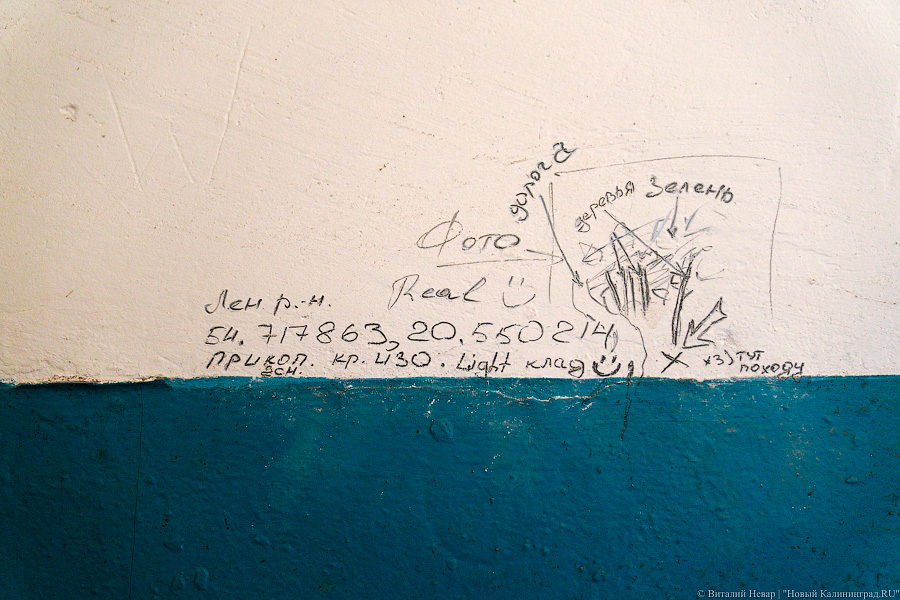 дорога
деревья зелень
Фото
Real
Лен р-н.
54.717863,20.550214
прикоп. кр. ИЗО. Light клад
2см.
х3) тут
походу
© Виталий Невар | "Новый Калининград.RU"